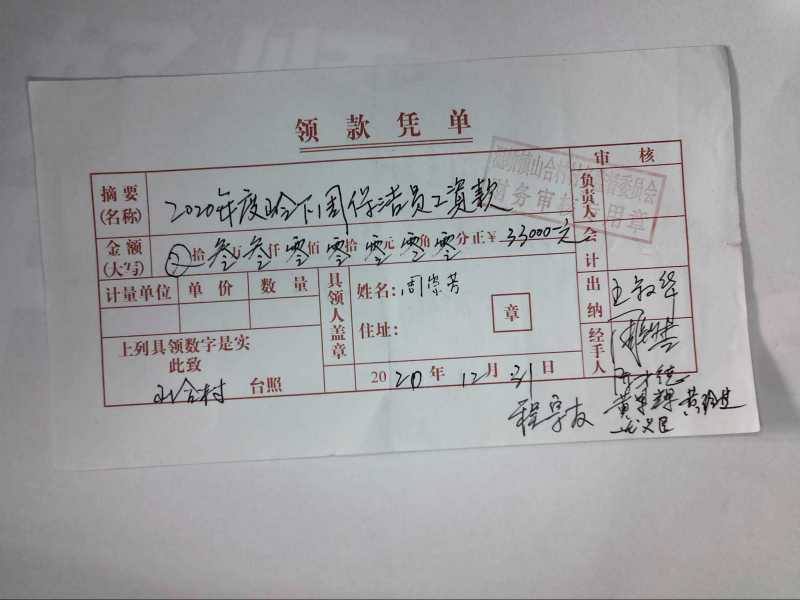 领款凭单
摘要(名称) 2020年度 下周保洁员工资款
财务审核专用章
审核
负责人
金额(大写) 拾叁万叁仟零佰零拾零元零角零分正¥33000一元
会计
计量单位 单价 数量
具领人盖章
姓名:周崇芳
章
住址:
出纳
经手人
上列具领数字是实
此致
山合村 台照
2020年12月31日
程宗友